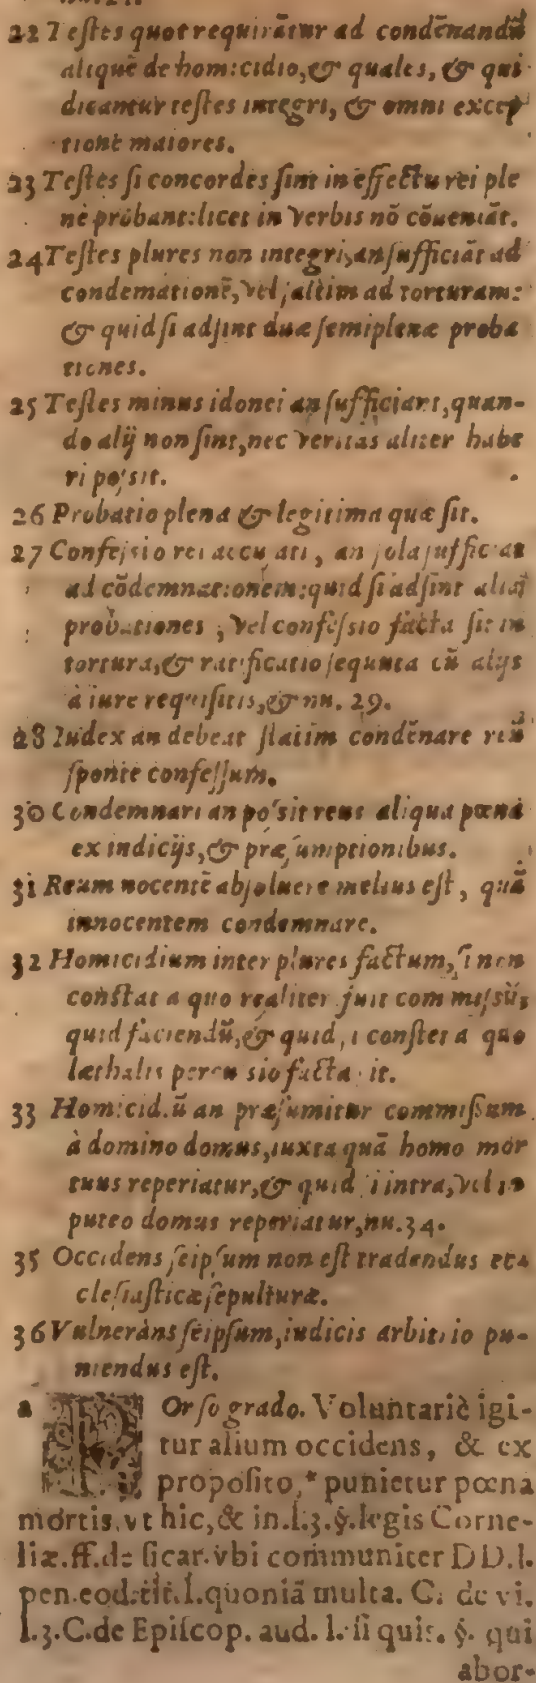 22 Teſtes quot requirātur ad condēnandū
aliquē de homicidio, & quales, & qui
dicantur teſtes integri, & omni excep
tione maiores.
23 Teſtes ſi concordes ſint in effectu rei ple
nè probant: licet in verbis nō cōueniāt.
24 Teſtes plures non integri, an ſufficiāt ad
condemationē, vel ſaltim ad torturam:
& quid ſi adſint duæ ſemiplenæ proba
tiones.
25 Teſtes minus idonei an ſufficiant, quan-
do alij non ſint, nec veritas aliter habe
ri poſsit.
26 Probatio plena & legitima quæ ſit.
27 Confeſsio rei accuſati, an ſola ſufficiat
ad cōdemnationem: quid ſi adſint aliæ
probationes, vel confeſsio facta ſit in
tortura, & ratificatio ſequuta cū alijs
à iure requiſitis, & nu. 29.
28 Iudex an debeat ſtatim condēnare reū
ſponte confeſſum.
30 Condemnari an poſsit reus aliqua pœna
ex indicijs, & præſumptionibus.
31 Reum nocentē abſoluere melius eſt, quā
innocentem condemnare.
32 Homicidium inter plures factum, ſi non
conſtat a quo realiter fuit commiſsū,
quid faciendū, & quid ſi conſtet a quo
læthalis percuſsio facta ſit.
33 Homicidiū an præſumitur commiſſum
à domino domus, iuxta quā homo mor
tuus reperiatur, & quid ſi intra, vel in
puteo domus reperiatur, nu. 34.
35 Occidens ſeipſum non eſt tradendus ec-
cleſiaſticæ ſepulturæ.
36 Vulnerans ſeipſum, iudicis arbitrio pu-
niendus eſt.
a POr ſo grado. Voluntariè igi-
tur alium occidens, & ex
propoſito,* punietur pœna
mortis, vt hic, & in. l. 3. §. legis Corne-
liæ. ff. de ſicar. vbi communiter DD. l.
pen. eod. tit. l. quoniā multa. C. de vi.
l. 3. C. de Epiſcop. aud. l. ſi quis. §. qui
abor-